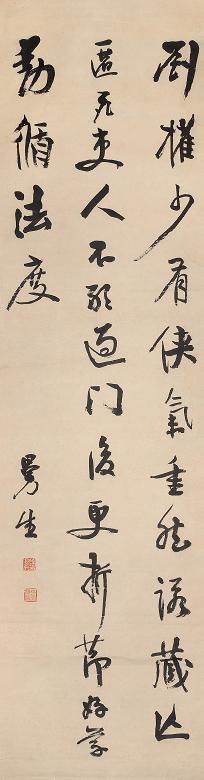 劉權少有俠氣重然諾藏亡
匿死吏人不敢過門後更折節好學
動循法度
曼生